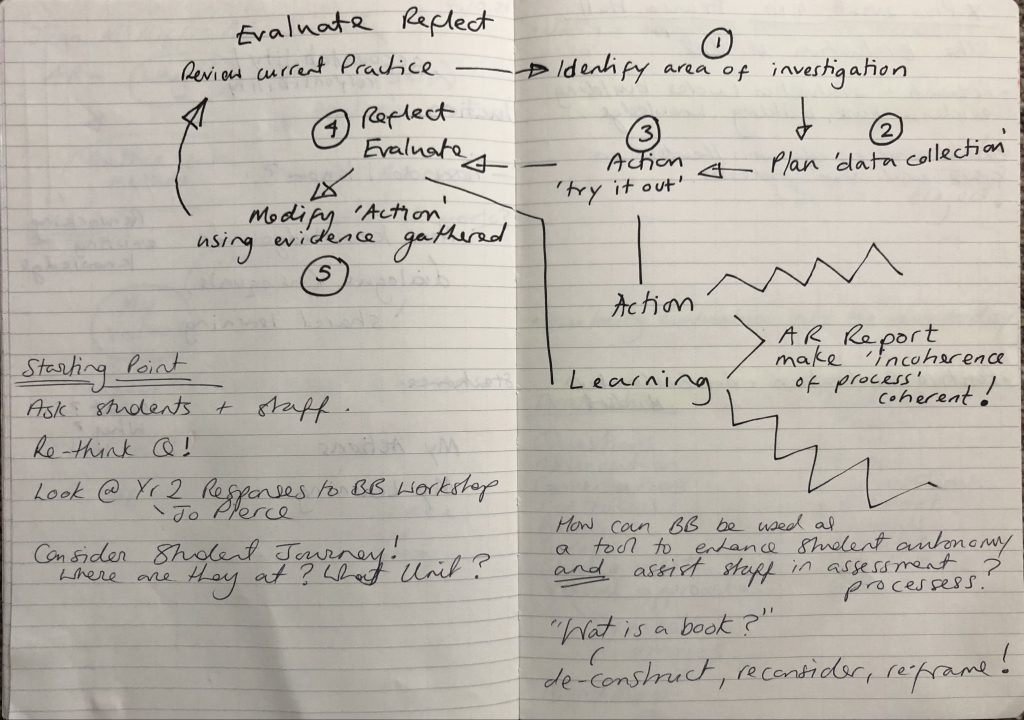 Evaluate Reflect
Review current Practice
4
Reflect
Evaluate
Modify 'Action'
using evidence gathered
5
Starting Point
Ask students + staff.
Re-think Q!
Look @ Yr 2 Responses to BB Workshop
Jo Pierce
Consider Student Journey!
where are they at? What Unit?
1
Identify area of investigation
2
Plan 'data collection'
3
Action
'try it out'
Action
AR Report
make 'incoherence
of process'
coherent!
Learning
How can BB be used as
a tool to enhance student autonomy
and assist staff in assessment
processess?
"Wat is a book?"
de-construct, reconsider, re-frame!